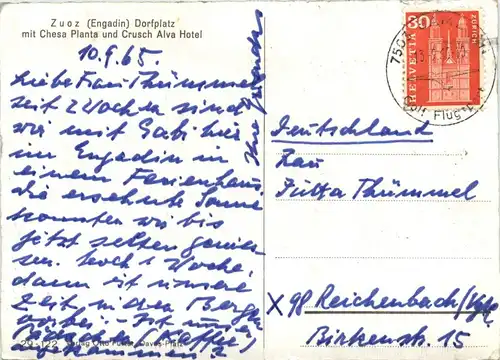 Zuoz (Engadin) Dorfplatz
mit Chesa Planta und Crusch Alva Hotel
10.9.65
Liebe Frau Thümmel
seit 2 Wochen sind
wir mit Gabi hier
im Engadin in
einem Ferienhaus,
die ersehnte Sonne
konnten wir bis
jetzt selten genies-
sen. Noch 1 Woche,
dann ist unsere
Zeit in den Bergen
vorbei. Ist
Ihre
HELVETIA
ZÜRICH
Deutschland
Frau
Jutta Thümmel
X 98 Reichenbach/Vgtl.
Birkenstr. 15